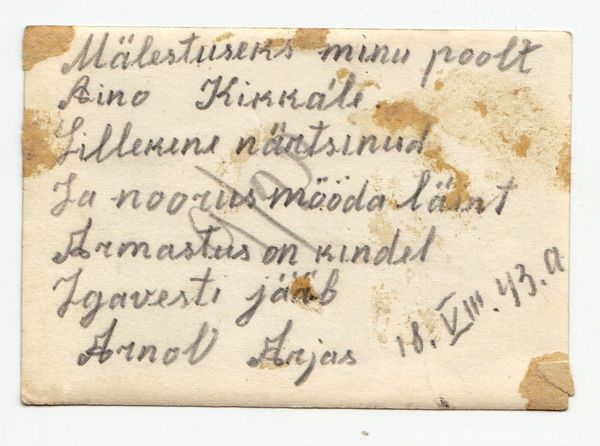 Mälestuseks minu poolt
Aino Kikkále.
Lillekene närtsinud
Ja noorus mööda läint
Armastus on kindel
Igavesti jääb
Arnol Arjas
18. VIII. 43. a